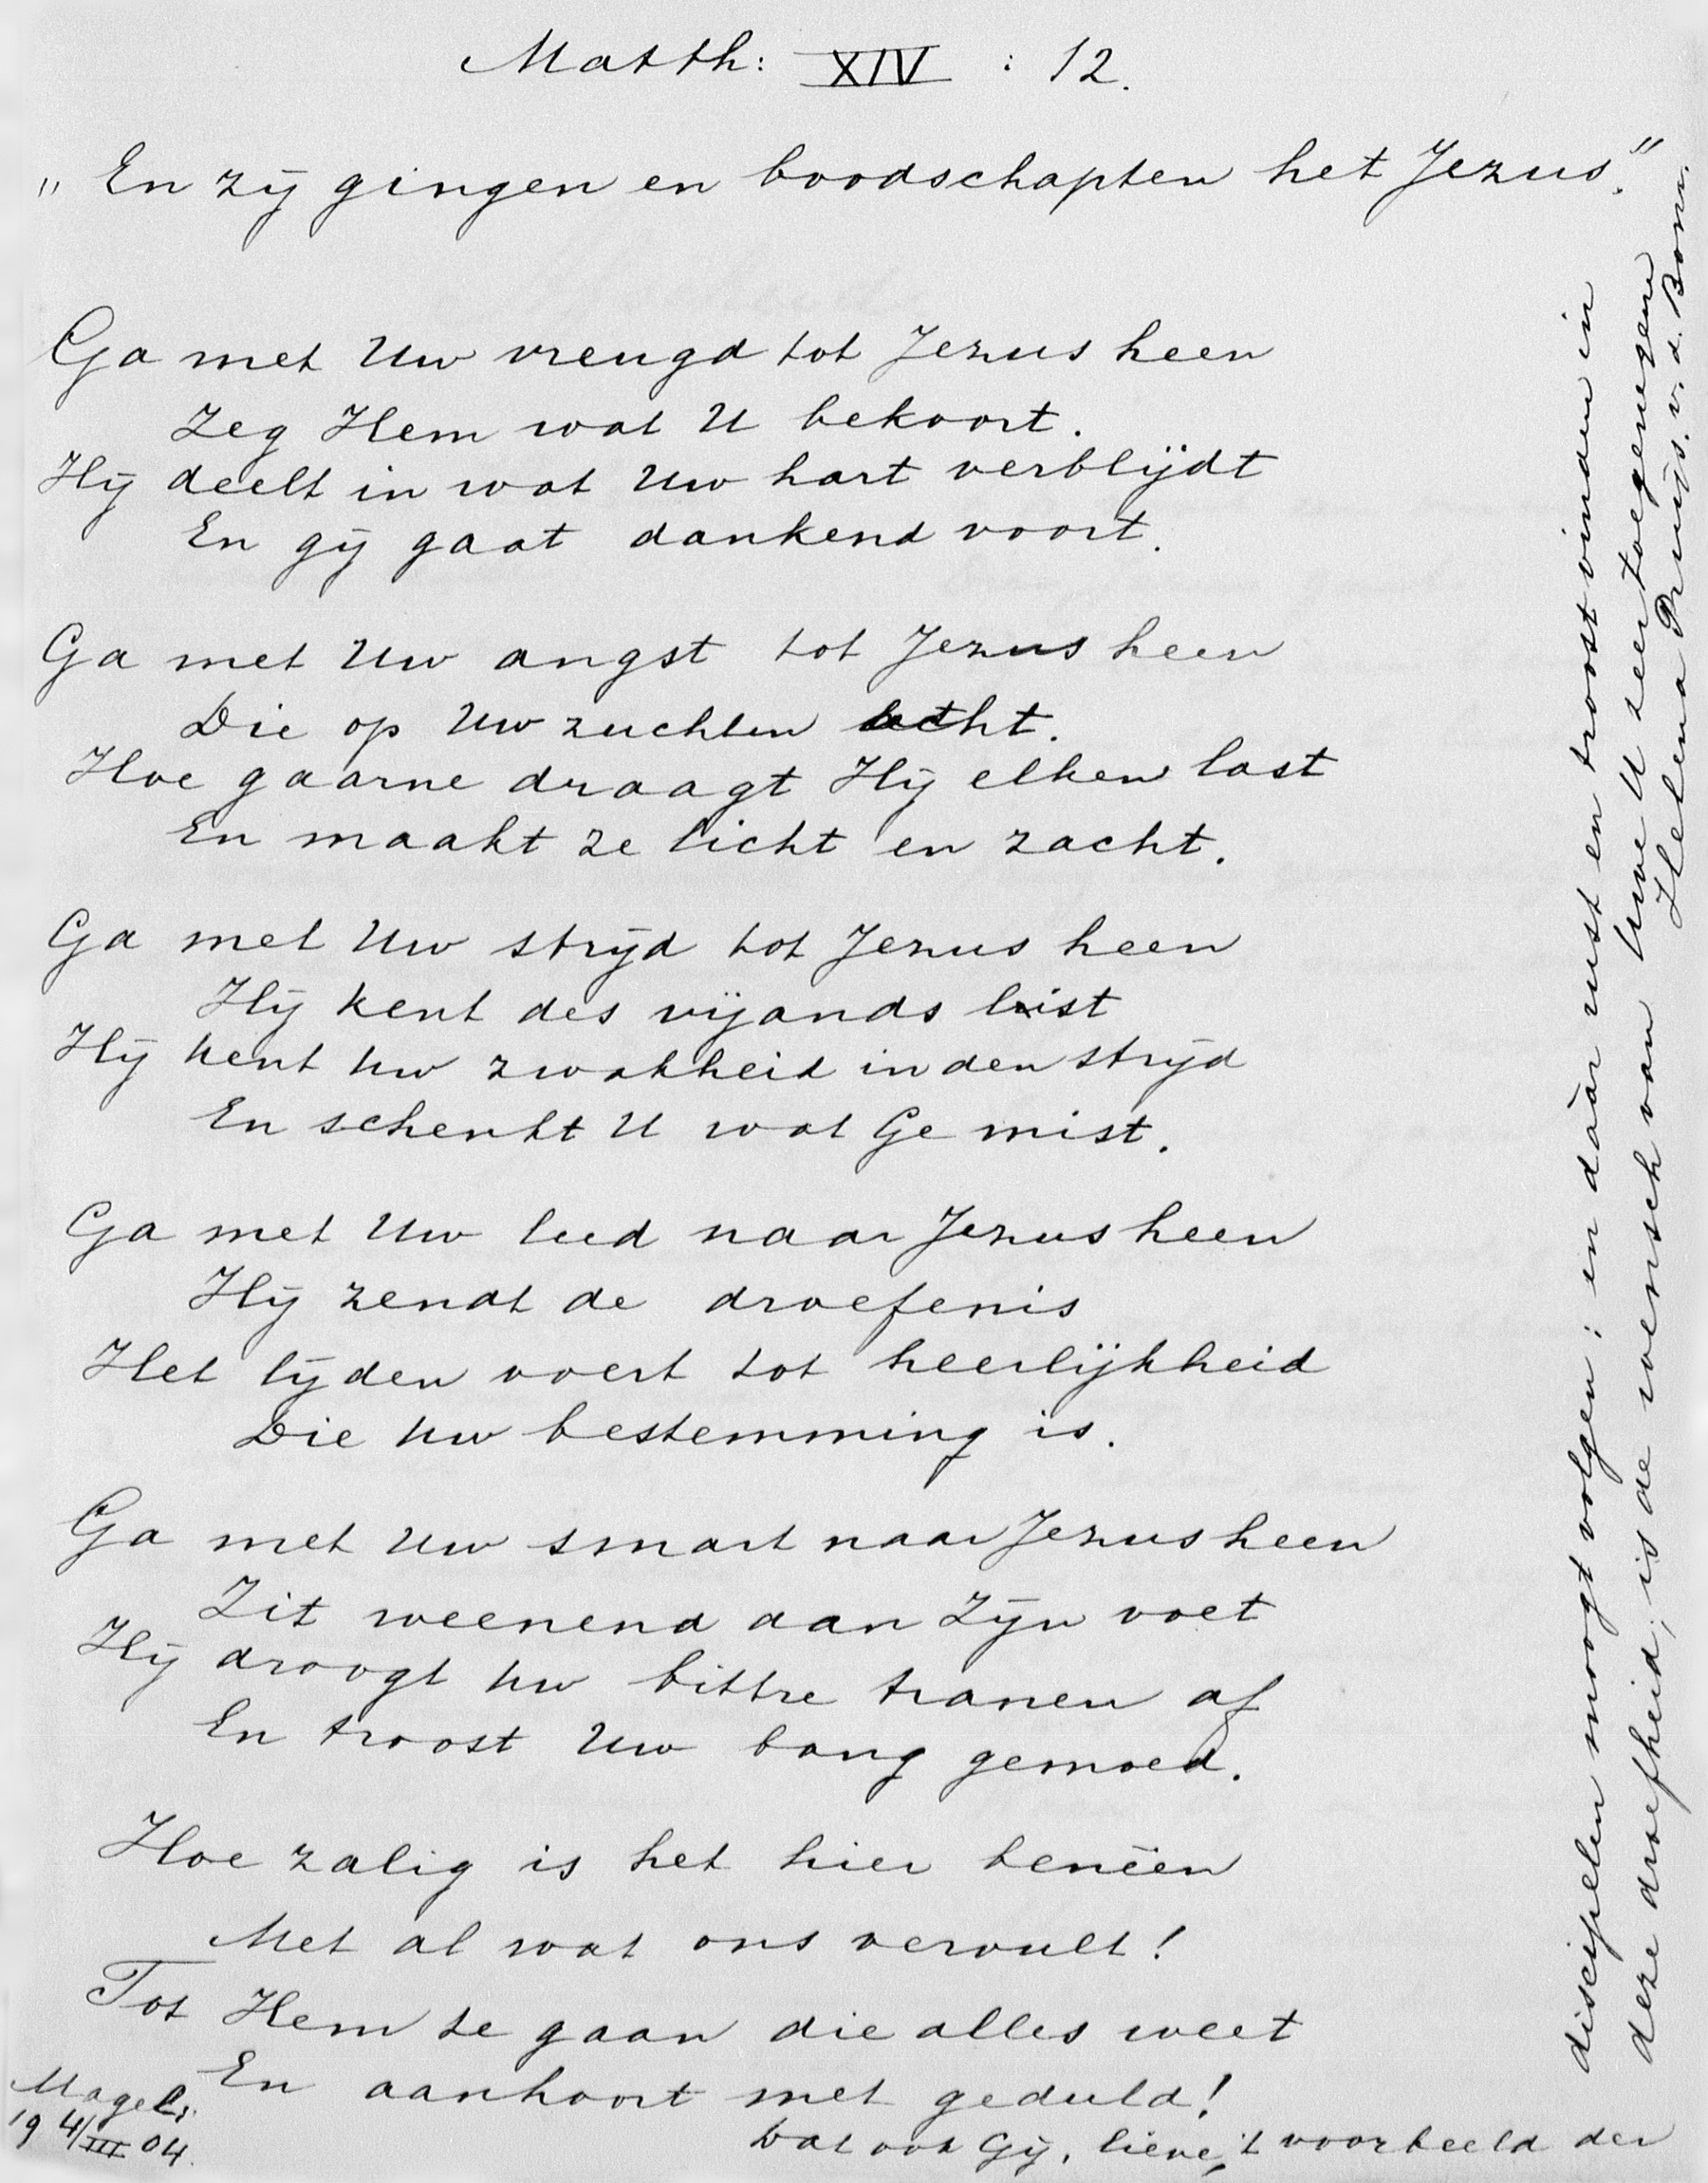 Matth: XIV : 12.
„ En zij gingen en boodschapten het Jezus."
Ga met Uw vreugd tot Jezus heen
Zeg Hem wat U bekoort.
Hij deelt in wat Uw hart verblijdt
En gij gaat dankend voort.
Ga met Uw angst tot Jezus heen
Die op Uw zuchten acht.
Hoe gaarne draagt Hij elken last
En maakt ze licht en zacht.
Ga met Uw strijd tot Jezus heen
Hij kent des vijands list
Hij kent Uw zwakheid in den strijd
En schenkt U wat Ge mist.
Ga met Uw leed naar Jezus heen
Hij zendt de droefenis
Het lijden voert tot heerlijkheid
Die Uw bestemming is.
Ga met Uw smart naar Jezus heen
Zit weenend aan Zijn voet
Hij droogt Uw bittre tranen af
En troost Uw bang gemoed.
Hoe zalig is het hier benêen
Met al wat ons vervult!
Tot Hem te gaan die alles weet
En aanhoort met geduld!
19 4/III 04.
Dat ook Gij, lieve, 't voorbeeld der
discipelen moogt volgen; en dáár rust en troost vinden in
deze droefheid, is de wensch van Uwe U zeer toegenegene
Helena Pruijs. v. d. Bomr.